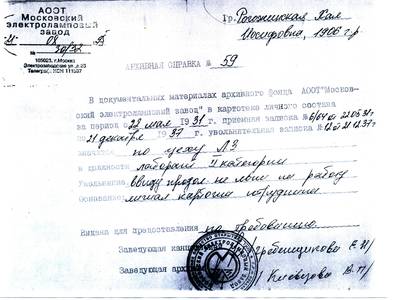 АООТ
Московский
электроламповый
завод
11 08 95
№ 30/32
105023, г. Москва
Электрозаводская ул. д. 23
Гр. Рогожинская Хая
Иосифовна, 1906 г.р.
АРХИВНАЯ СПРАВКА № 59
В документальных материалах архивного фонда АООТ "Москов-
ский электроламповый завод" в картотеке личного состава
за период с 22 мая 1931 г. приемная записка № 6/04 от 22.05.31 г.
по 21 декабря 1937 г. увольнительная записка № от 21.12.37 г.
значится по цеху ЛЗ
в должности лаборант II категории
Увольнение ввиду продол. не явки на работу
Основание: личная карточка сотрудника
Выдана для предоставления по требованию.
Заведующая Гребенщикова Е.
Заведующая архивом